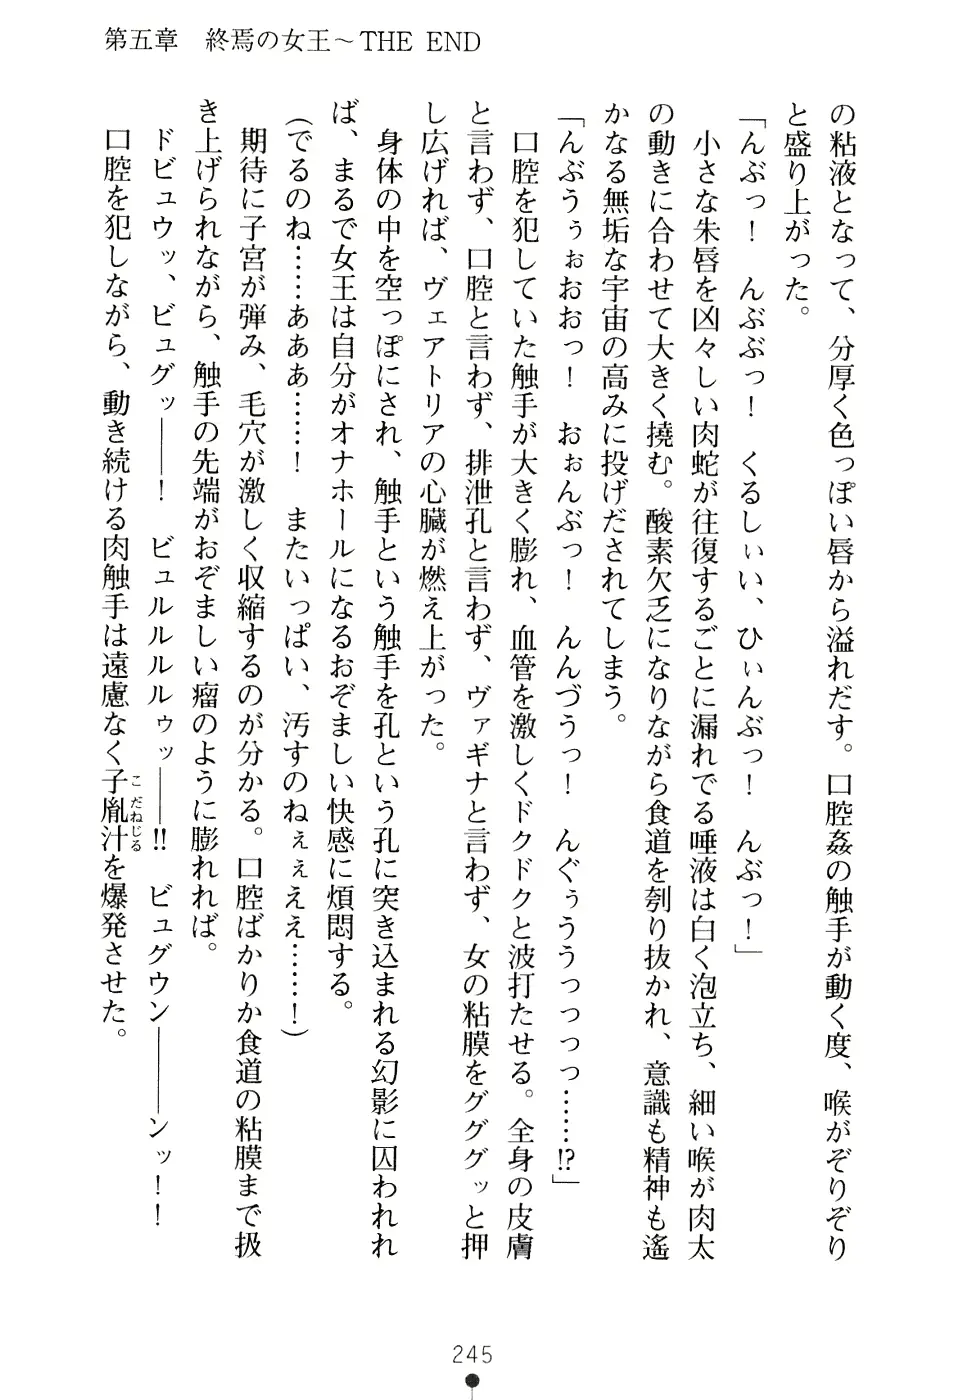 第五章　終焉の女王～THE END
の粘液となって、分厚く色っぽい唇から溢れだす。口腔姦の触手が動く度、喉がぞりぞり
と盛り上がった。
「んぶっ！　んぶぶっ！　くるしぃい、ひぃんぶっ！　んぶっ！」
小さな朱唇を凶々しい肉蛇が往復するごとに漏れでる唾液は白く泡立ち、細い喉が肉太
の動きに合わせて大きく撓む。酸素欠乏になりながら食道を刳り抜かれ、意識も精神も遙
かなる無垢な宇宙の高みに投げだされてしまう。
「んぶうぅぉおおっ！　おぉんぶっ！　んんづうっ！　んぐぅううっっっっ……⁉」
口腔を犯していた触手が大きく膨れ、血管を激しくドクドクと波打たせる。全身の皮膚
と言わず、口腔と言わず、排泄孔と言わず、ヴァギナと言わず、女の粘膜をグググッと押
し広げれば、ヴェアトリアの心臓が燃え上がった。
身体の中を空っぽにされ、触手という触手を孔という孔に突き込まれる幻影に囚われれ
ば、まるで女王は自分がオナホールになるおぞましい快感に煩悶する。
（でるのね……あああ……！　またいっぱい、汚すのねぇぇええ……！）
期待に子宮が弾み、毛穴が激しく収縮するのが分かる。口腔ばかりか食道の粘膜まで扱
き上げられながら、触手の先端がおぞましい瘤のように膨れれば。
ドビュウッ、ビュグッ――！　ビュルルルルゥッ――‼　ビュグウン―――ンッ！！
口腔を犯しながら、動き続ける肉触手は遠慮なく子胤汁こだねじるを爆発させた。
245